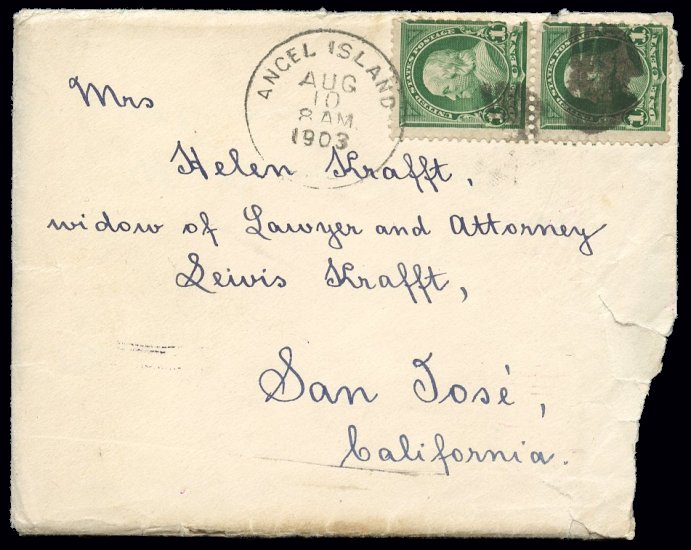 ANGEL ISLAND
AUG
10
8 AM
1903
UNITED STATES POSTAGE
1 ONE 1
1 ONE 1
Mrs
Helen Krafft,
widow of Lawyer and Attorney
Leivis Krafft,
San José,
California.